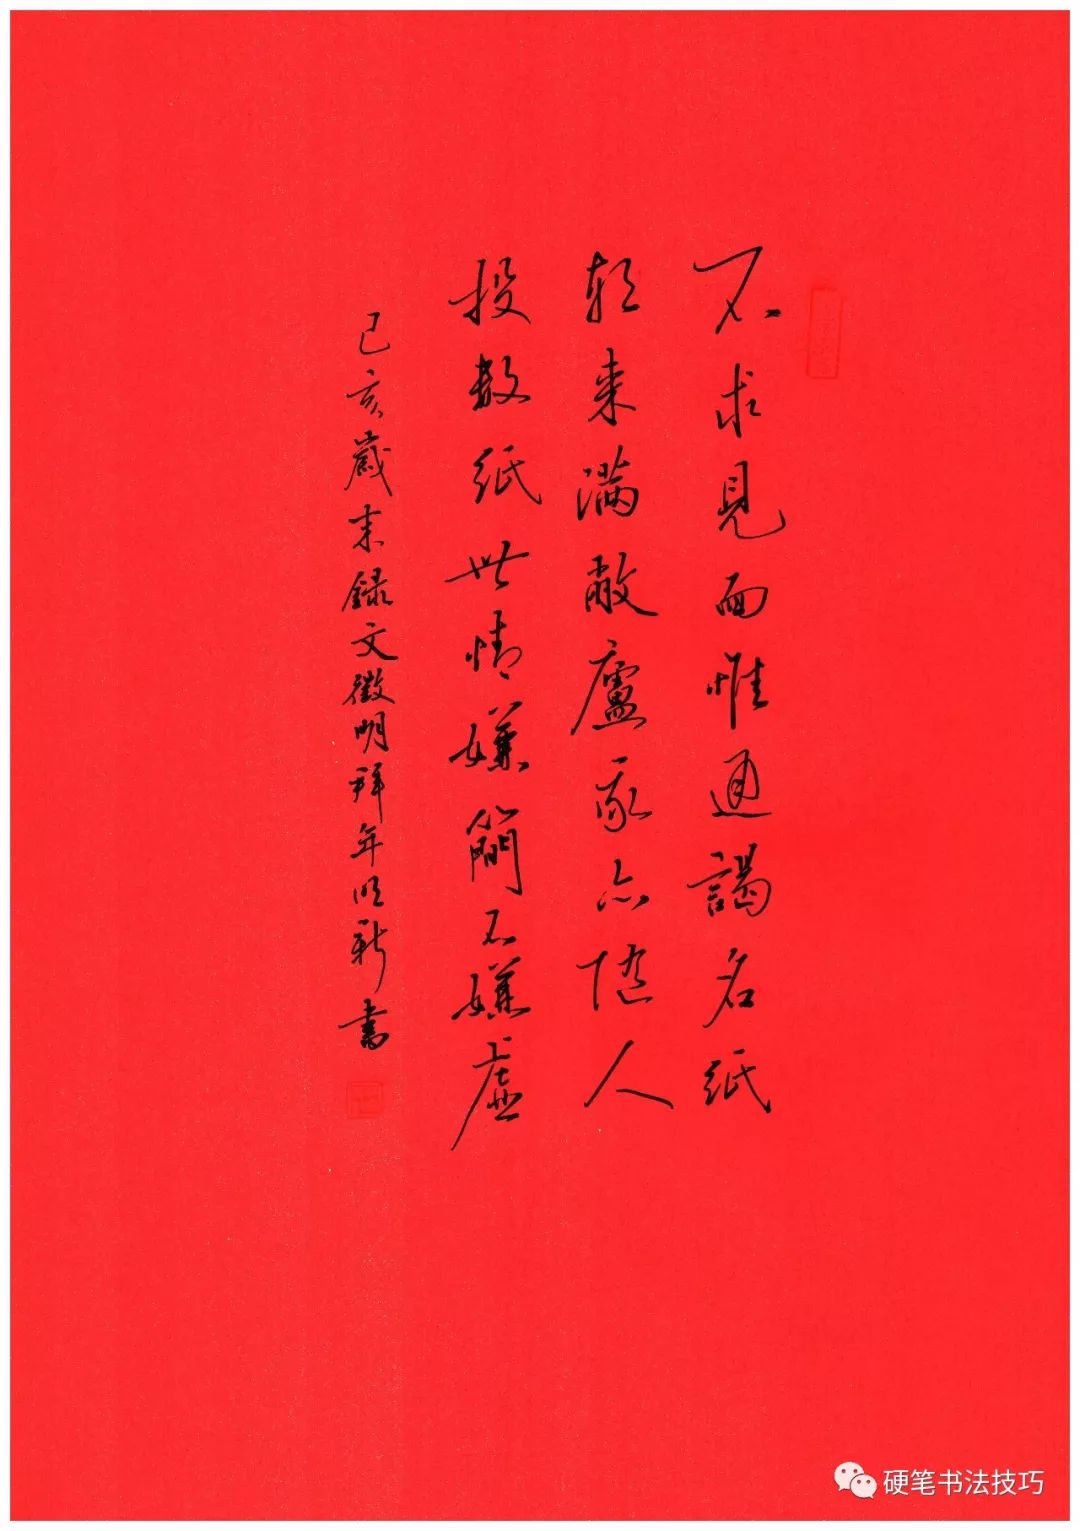 不求見面惟通謁名紙
朝来满敝廬我亦随人
投数紙世情嫌簡不嫌虚
己亥歲末録文徵明拜年 新書
硬笔书法技巧